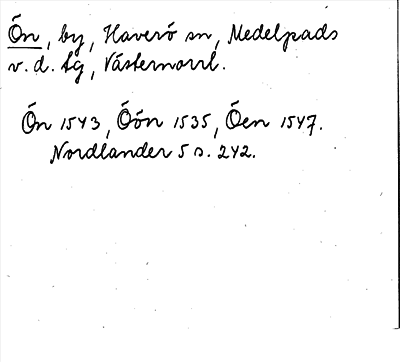 Ön, by, Haverö sn, Medelpads
v. d. tg, Västernorrl.
Ön 1543, Öön 1535, Öen 1547.
Nordlander 5 s. 242.